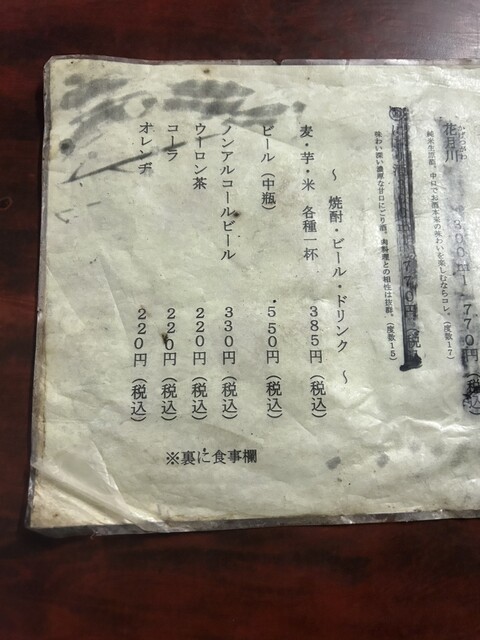 花月川
純米生原酒、中口でお酒本来の味わいを楽しむならコレ。（度数17）
770円（税込）
味わい深い濃厚な甘口にごり酒。肉料理との相性は抜群。（度数15）
770円（税込）
～ 焼酎・ビール・ドリンク ～
麦・芋・米 各種一杯 385円（税込）
ビール（中瓶） 550円（税込）
ノンアルコールビール 330円（税込）
ウーロン茶 220円（税込）
コーラ 220円（税込）
オレンヂ 220円（税込）
※裏に食事欄